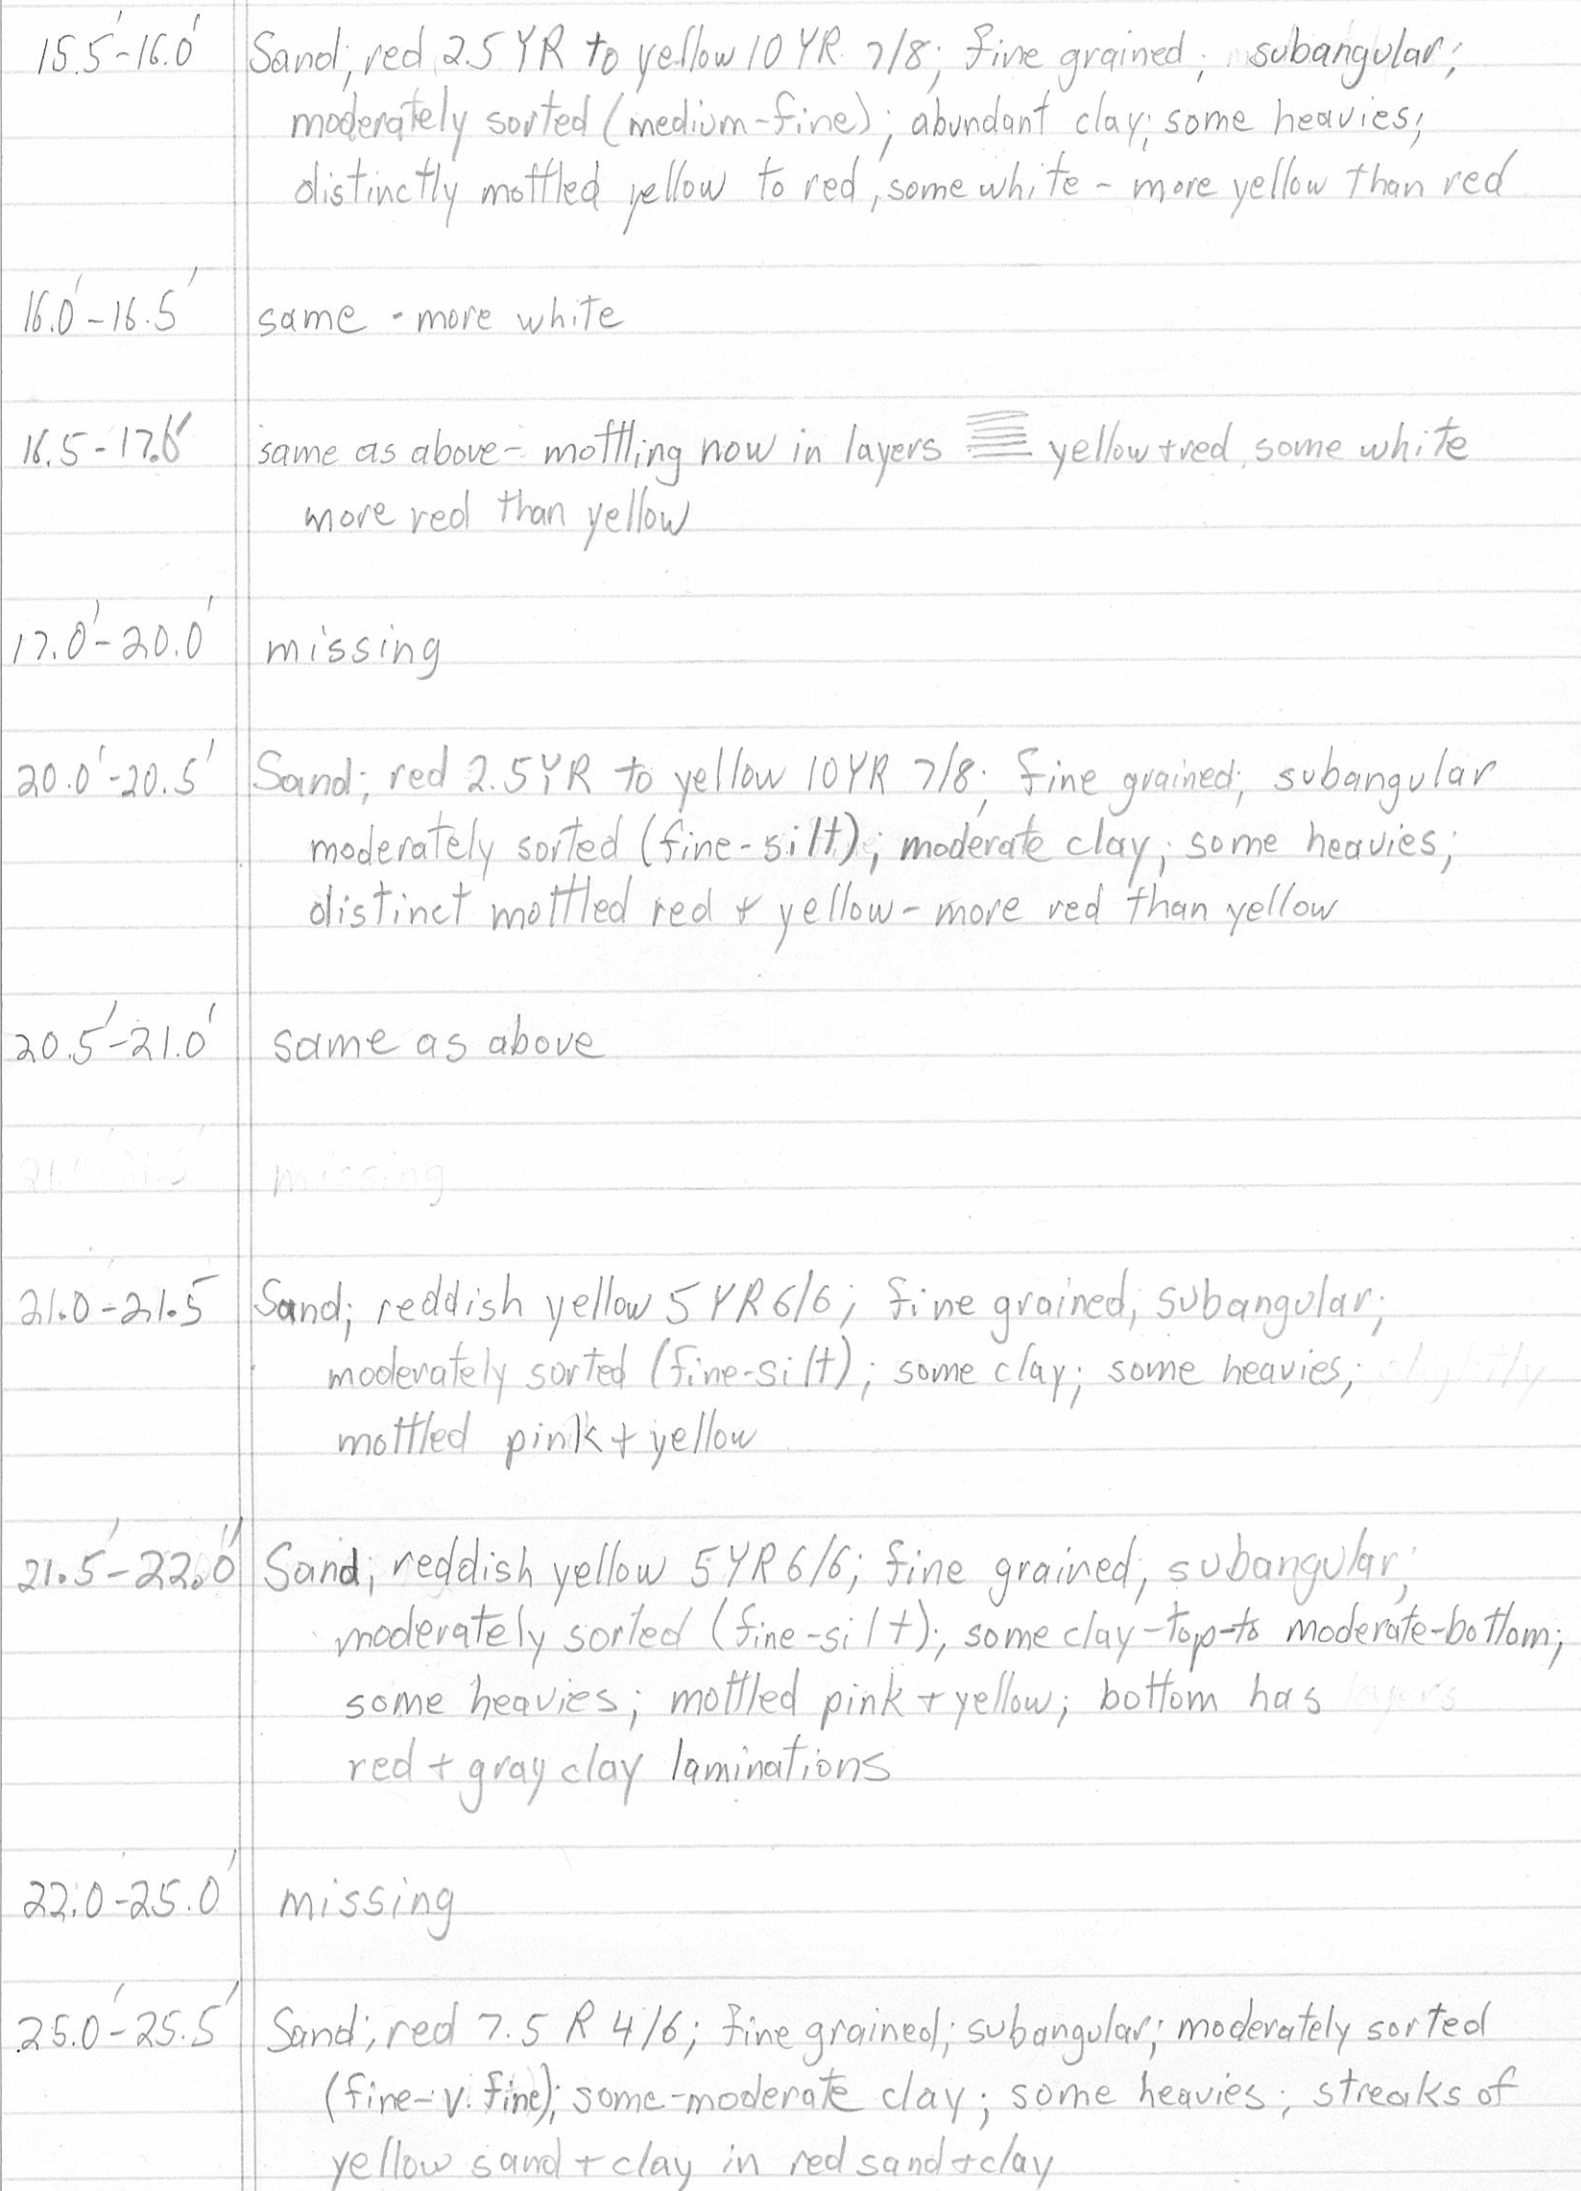 15.5'-16.0' Sand; red 2.5 YR to yellow 10 YR 7/8; fine grained; subangular;
moderately sorted (medium-fine); abundant clay; some heavies;
distinctly mottled yellow to red, some white - more yellow than red
16.0'-16.5' same - more white
16.5-17.0' same as above - mottling now in layers yellow + red, some white
more red than yellow
17.0'-20.0' missing
20.0'-20.5' Sand; red 2.5YR to yellow 10YR 7/8; fine grained; subangular
moderately sorted (fine-silt); moderate clay; some heavies;
distinct mottled red + yellow - more red than yellow
20.5'-21.0' same as above
missing
21.0-21.5 Sand; reddish yellow 5 YR 6/6; fine grained; subangular;
moderately sorted (fine-silt); some clay; some heavies; slightly
mottled pink + yellow
21.5'-22.0' Sand; reddish yellow 5YR 6/6; fine grained; subangular;
moderately sorted (fine-silt); some clay-top-to moderate-bottom;
some heavies; mottled pink + yellow; bottom has layers
red + gray clay laminations
22.0-25.0' missing
25.0'-25.5' Sand; red 7.5 R 4/6; fine grained; subangular; moderately sorted
(fine-v. fine); some-moderate clay; some heavies; streaks of
yellow sand + clay in red sand + clay